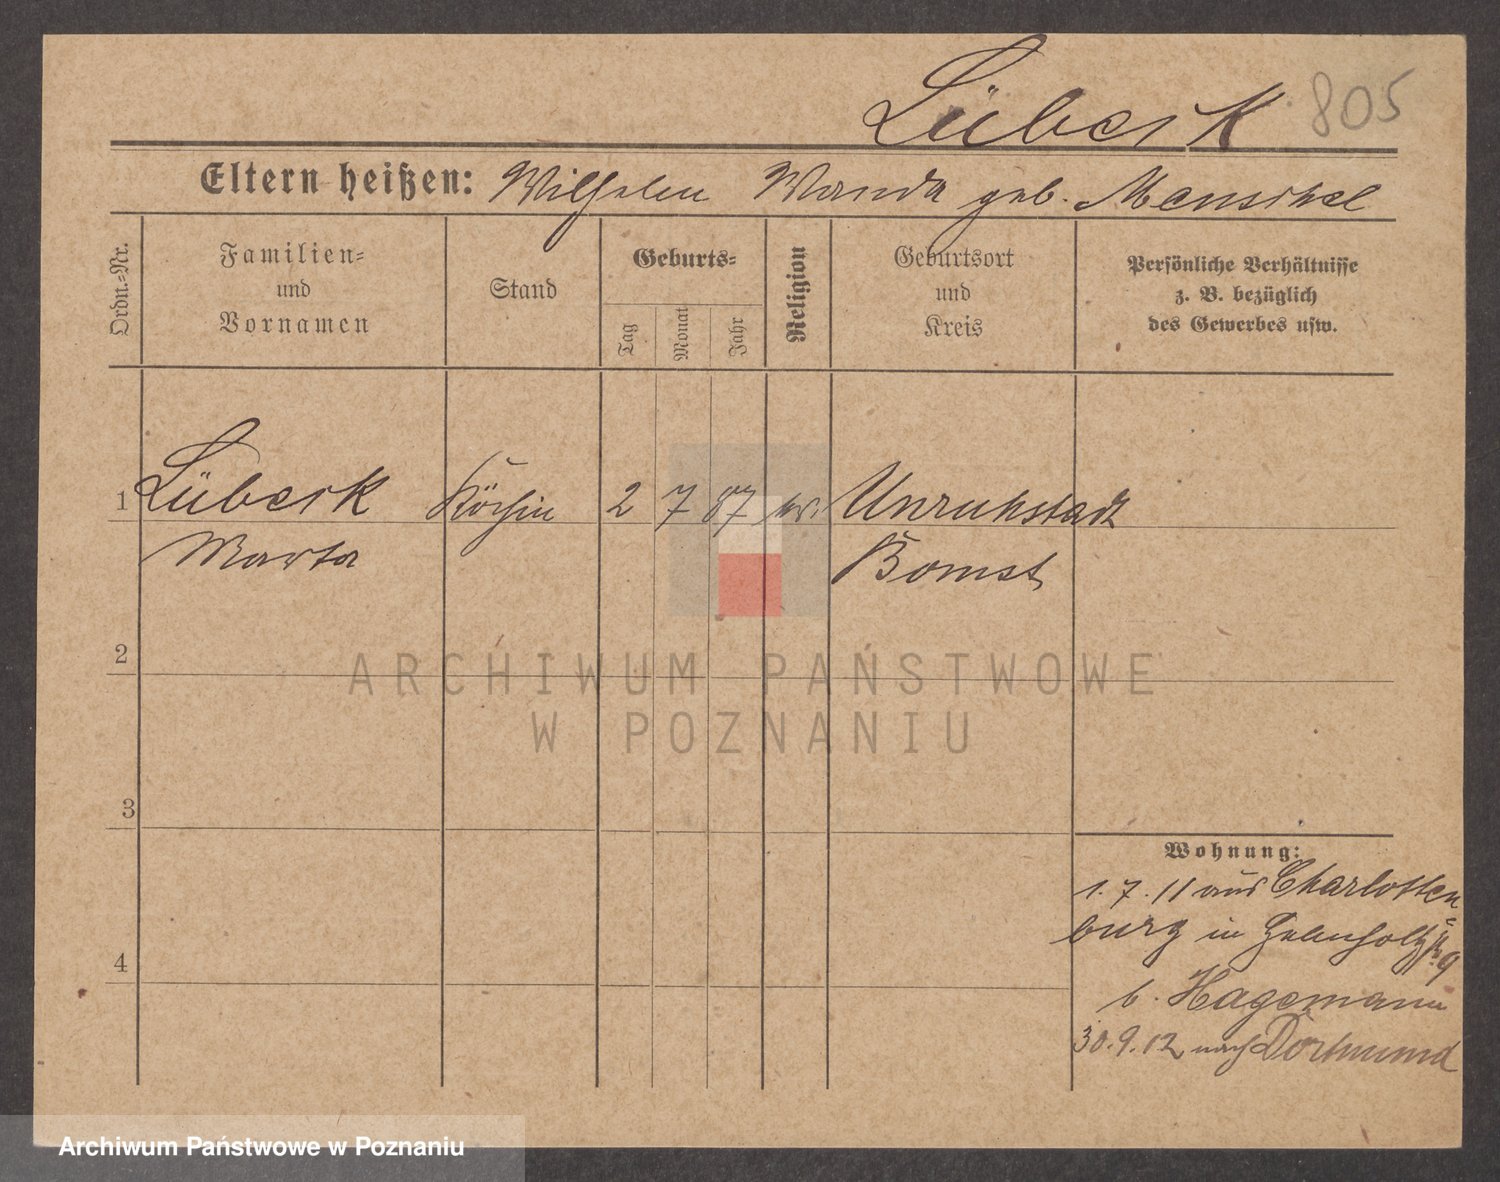 Lübeck 805
Eltern heißen: Wilhelm Wanda geb. Menschel
Ordn.-Nr.
Familien-
und
Vornamen
Stand
Geburts-
Tag
Monat
Jahr
Religion
Geburtsort
und
Kreis
Persönliche Verhältnisse
z. B. bezüglich
des Gewerbes usw.
1 Lübeck Köchin 2 7 87 ev. Unruhstadt
Marta Bomst
2
ARCHIWUM PAŃSTWOWE
W POZNANIU
3
Wohnung:
1.7.11 aus Charlotten=
burg in 9
4
b. Hagemann
30.9.12 nach Dortmund
Archiwum Państwowe w Poznaniu